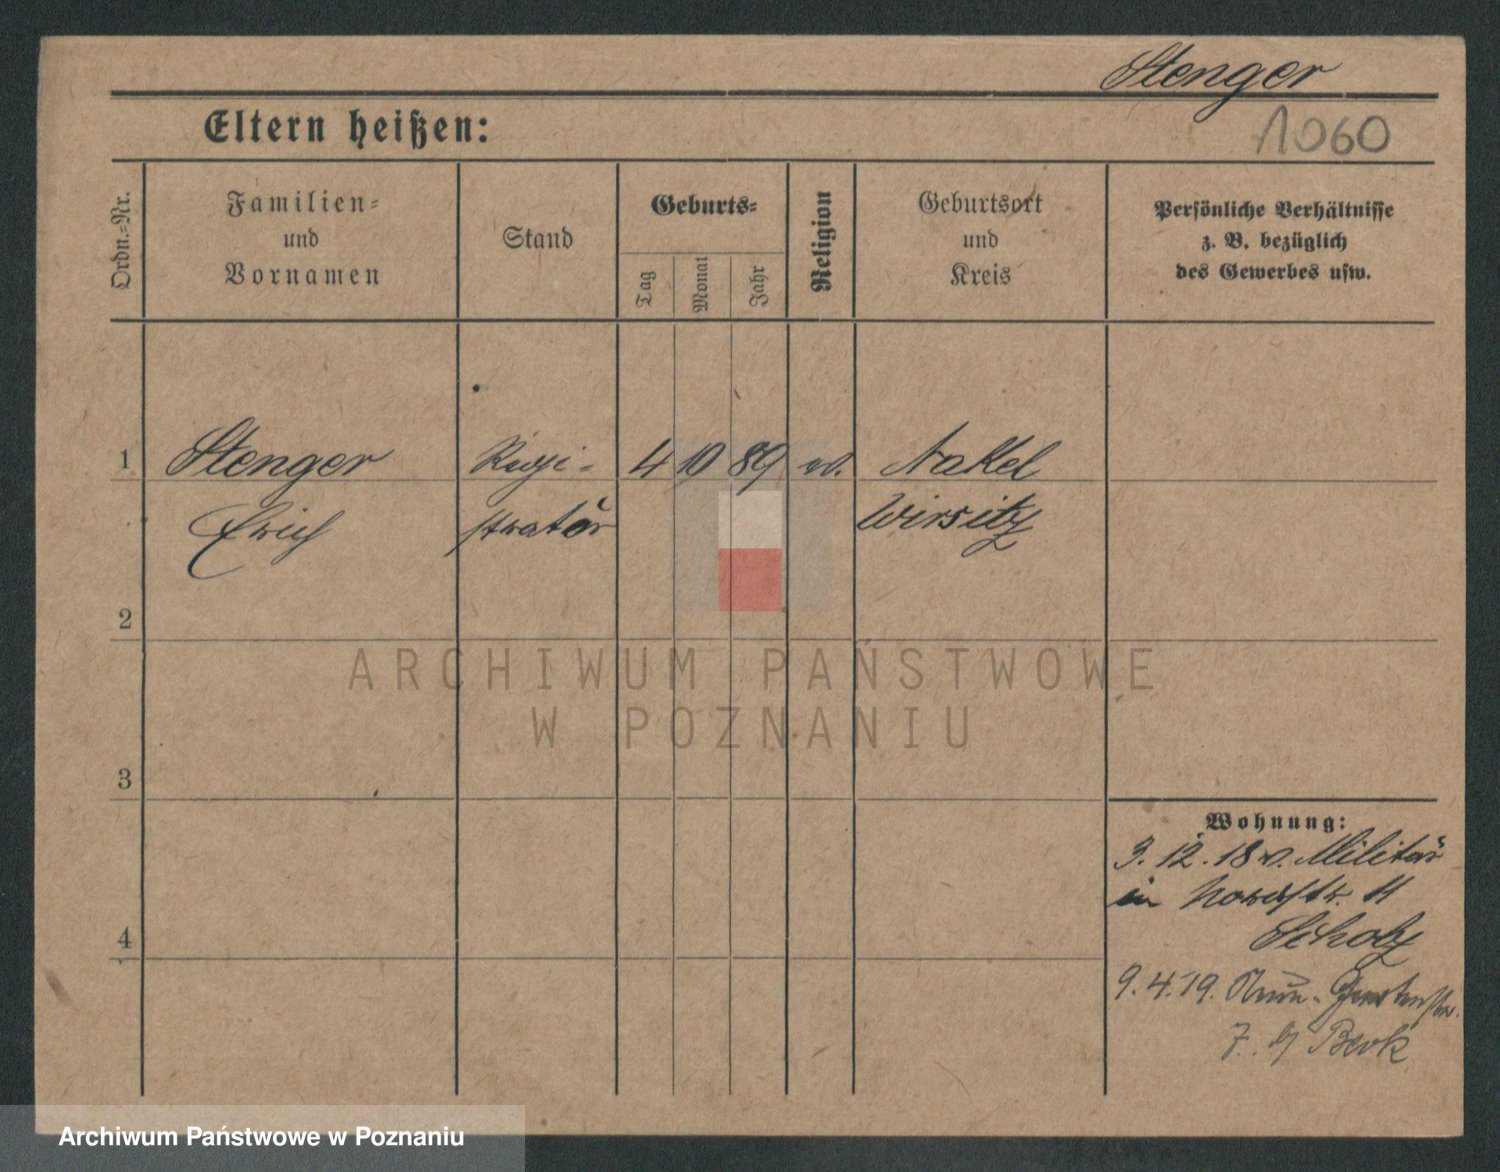 Stenger
1060
Eltern heißen:
Ordn.-Nr.
Familien- und Vornamen
Stand
Geburts-
Tag
Monat
Jahr
Religion
Geburtsort und Kreis
Persönliche Verhältnisse
z. B. bezüglich
des Gewerbes usw.
1 Stenger Regi- 4 10 89 ev. Nakel
Erich stratör Wirsitz
2
3
4
Wohnung:
3.12.18 v. Militär
in Nordstr. 11
Scholz
9.4.19.
7. b/ Berk
ARCHIWUM PAŃSTWOWE
W POZNANIU
Archiwum Państwowe w Poznaniu